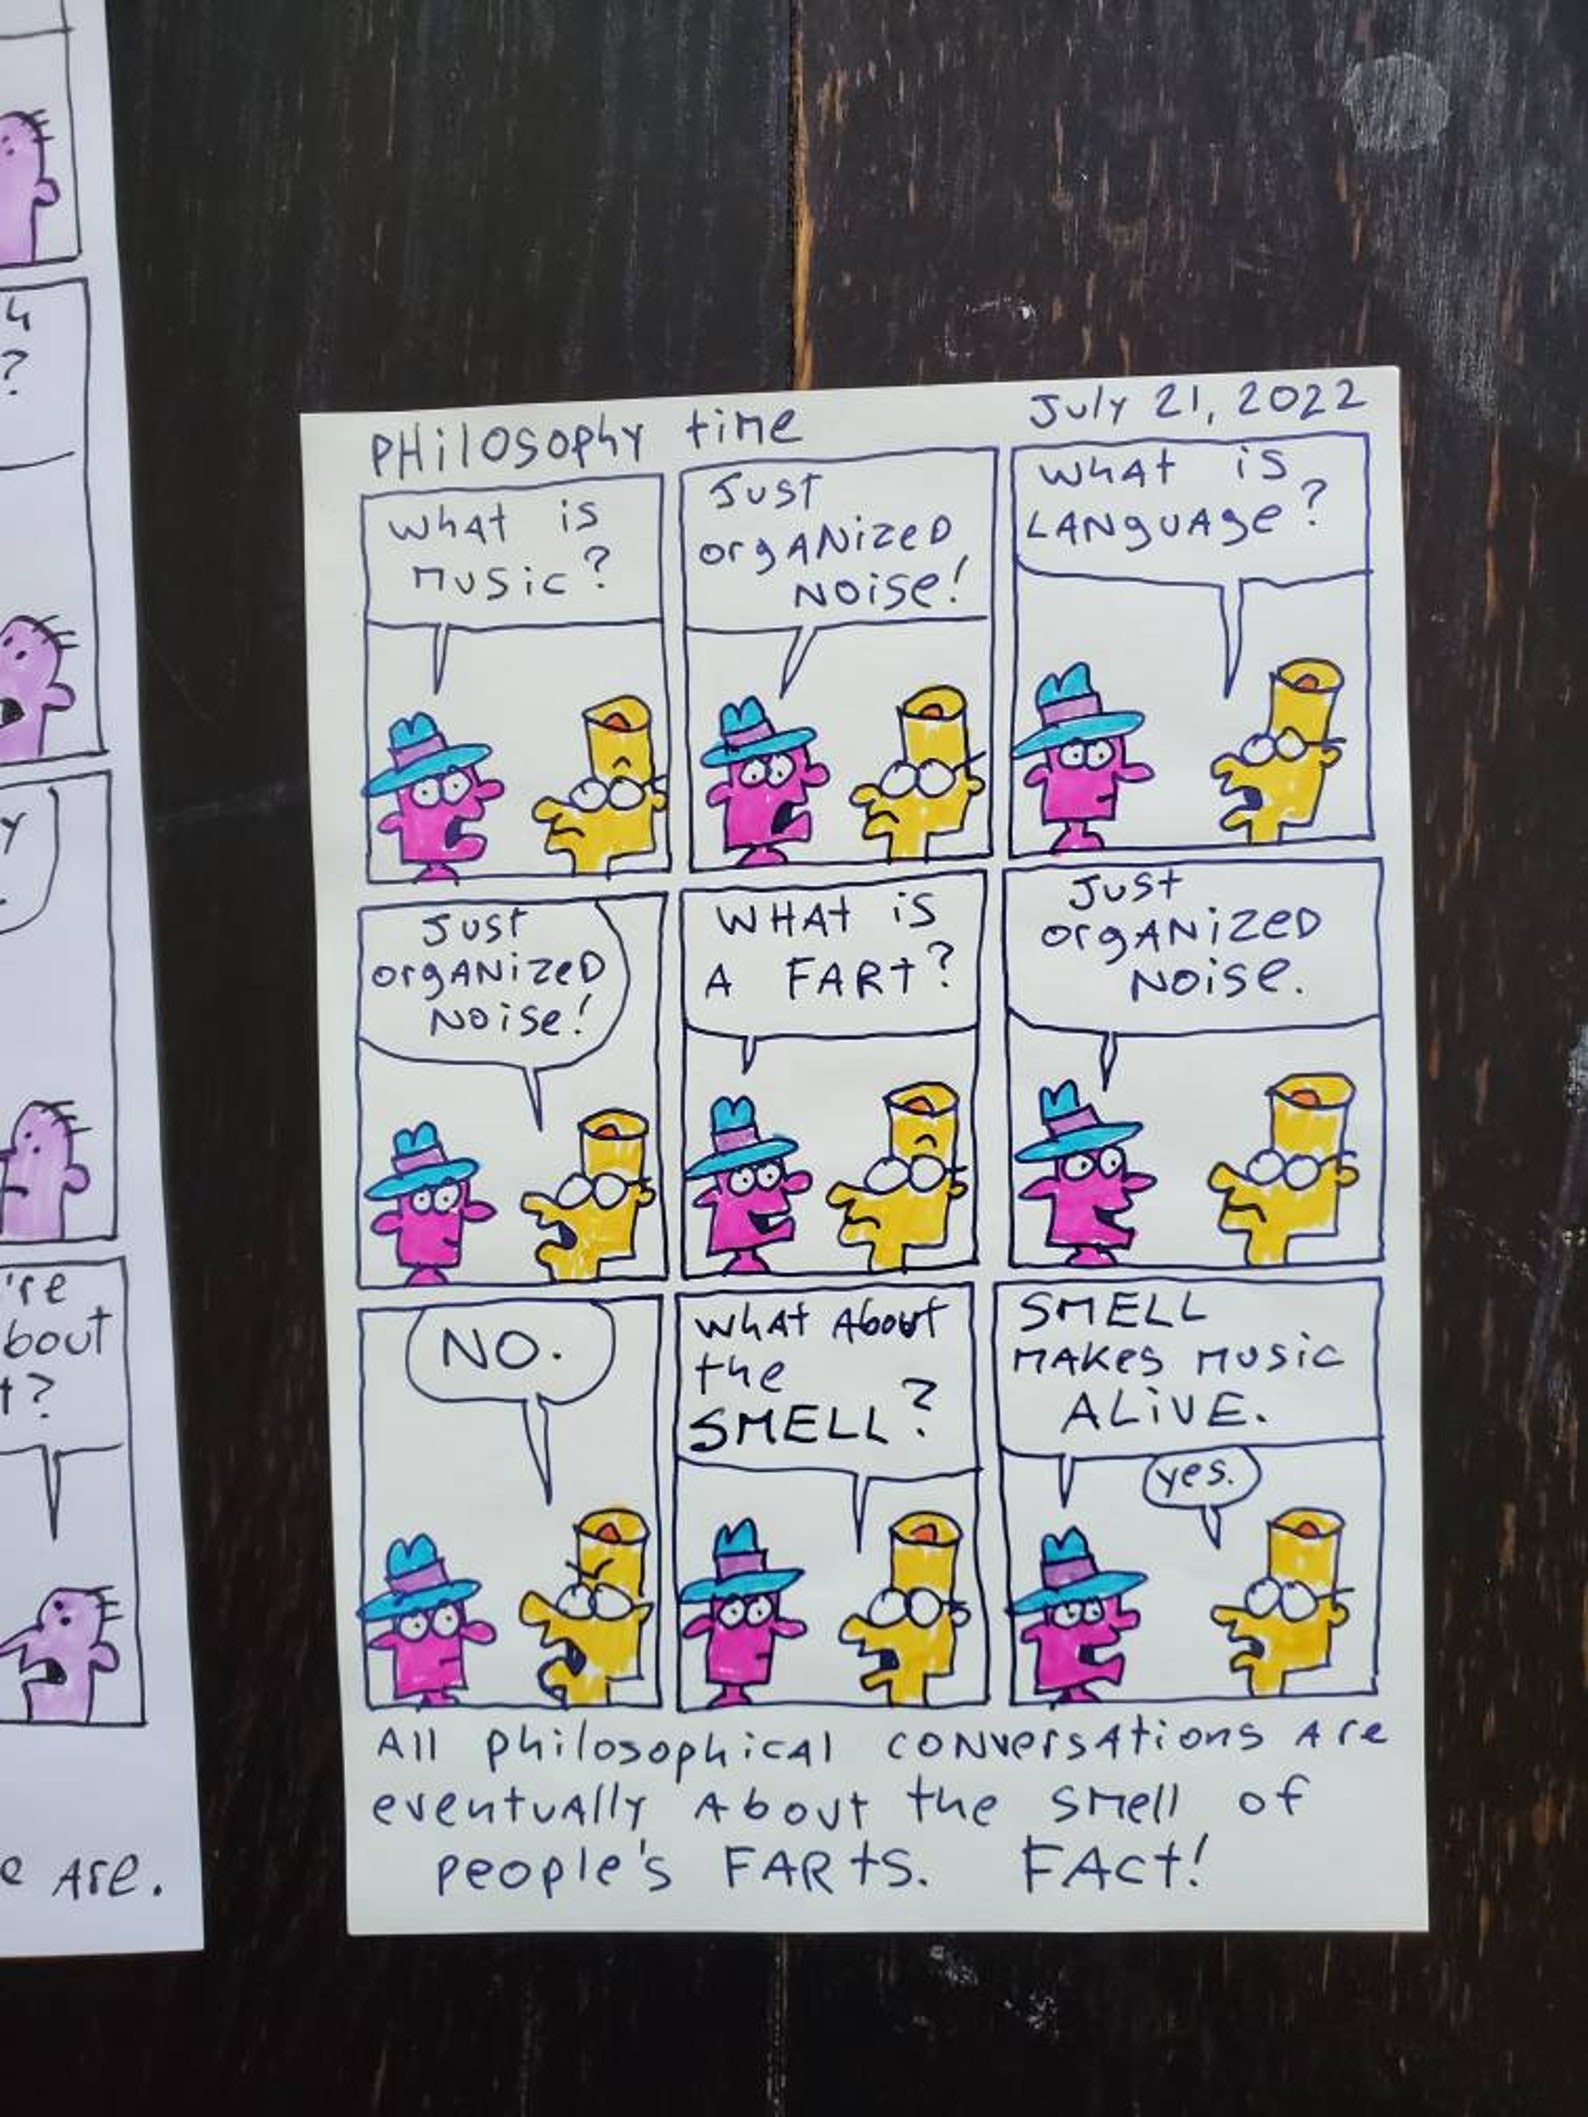 4
?
Y
're
bout
t?
e Are.
PHilosophy time
July 21, 2022
What is
music?
Just
orgANizeD
Noise!
What is
LANguAge?
Just
orgANizeD
Noise!
WHAt is
A FARt?
Just
orgANizeD
Noise.
NO.
What About
the
SMELL?
SMELL
makes music
ALiVE.
yes.
All philosophical conversations are
eventually About the smell of
people's FARts. FAct!